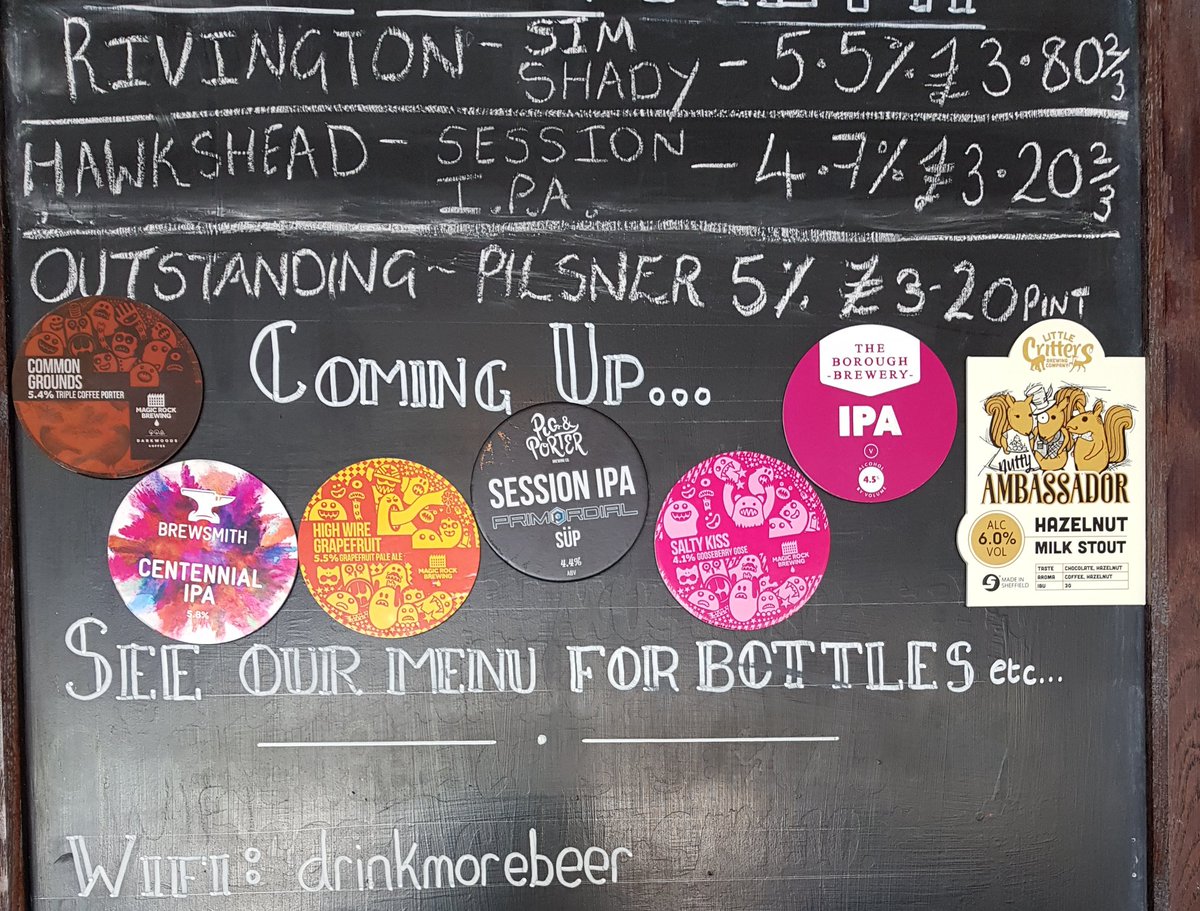 RIVINGTON - SIM SHADY - 5.5% £3.80 2/3
HAWKSHEAD - SESSION I.P.A. - 4.7% £3.20 2/3
OUTSTANDING - PILSNER 5% £3-20 PINT
COMING UP...
COMMON
GROUNDS
5.4% TRIPLE COFFEE PORTER
MAGIC ROCK
BREWING
DARKWOODS
COFFEE
BREWSMITH
CENTENNIAL
IPA
5.8%
HIGH WIRE
GRAPEFRUIT
5.5% GRAPEFRUIT PALE ALE
MAGIC ROCK
BREWING
PIG &
PORTER
BREWING CO.
SESSION IPA
PRIMORDIAL
SÜP
4.4%
ABV
SALTY KISS
4.1% GOOSEBERRY GOSE
MAGIC ROCK
BREWING
THE
BOROUGH
-BREWERY-
IPA
V
ALCOHOL
4.5%
BY VOLUME
LITTLE
Critters
BREWING
COMPANY
Nutty
AMBASSADOR
ALC
6.0%
VOL
HAZELNUT
MILK STOUT
TASTE CHOCOLATE, HAZELNUT
AROMA COFFEE, HAZELNUT
IBU 30
MADE IN
SHEFFIELD
SEE OUR MENU FOR BOTTLES etc...
WIFI: drinkmorebeer